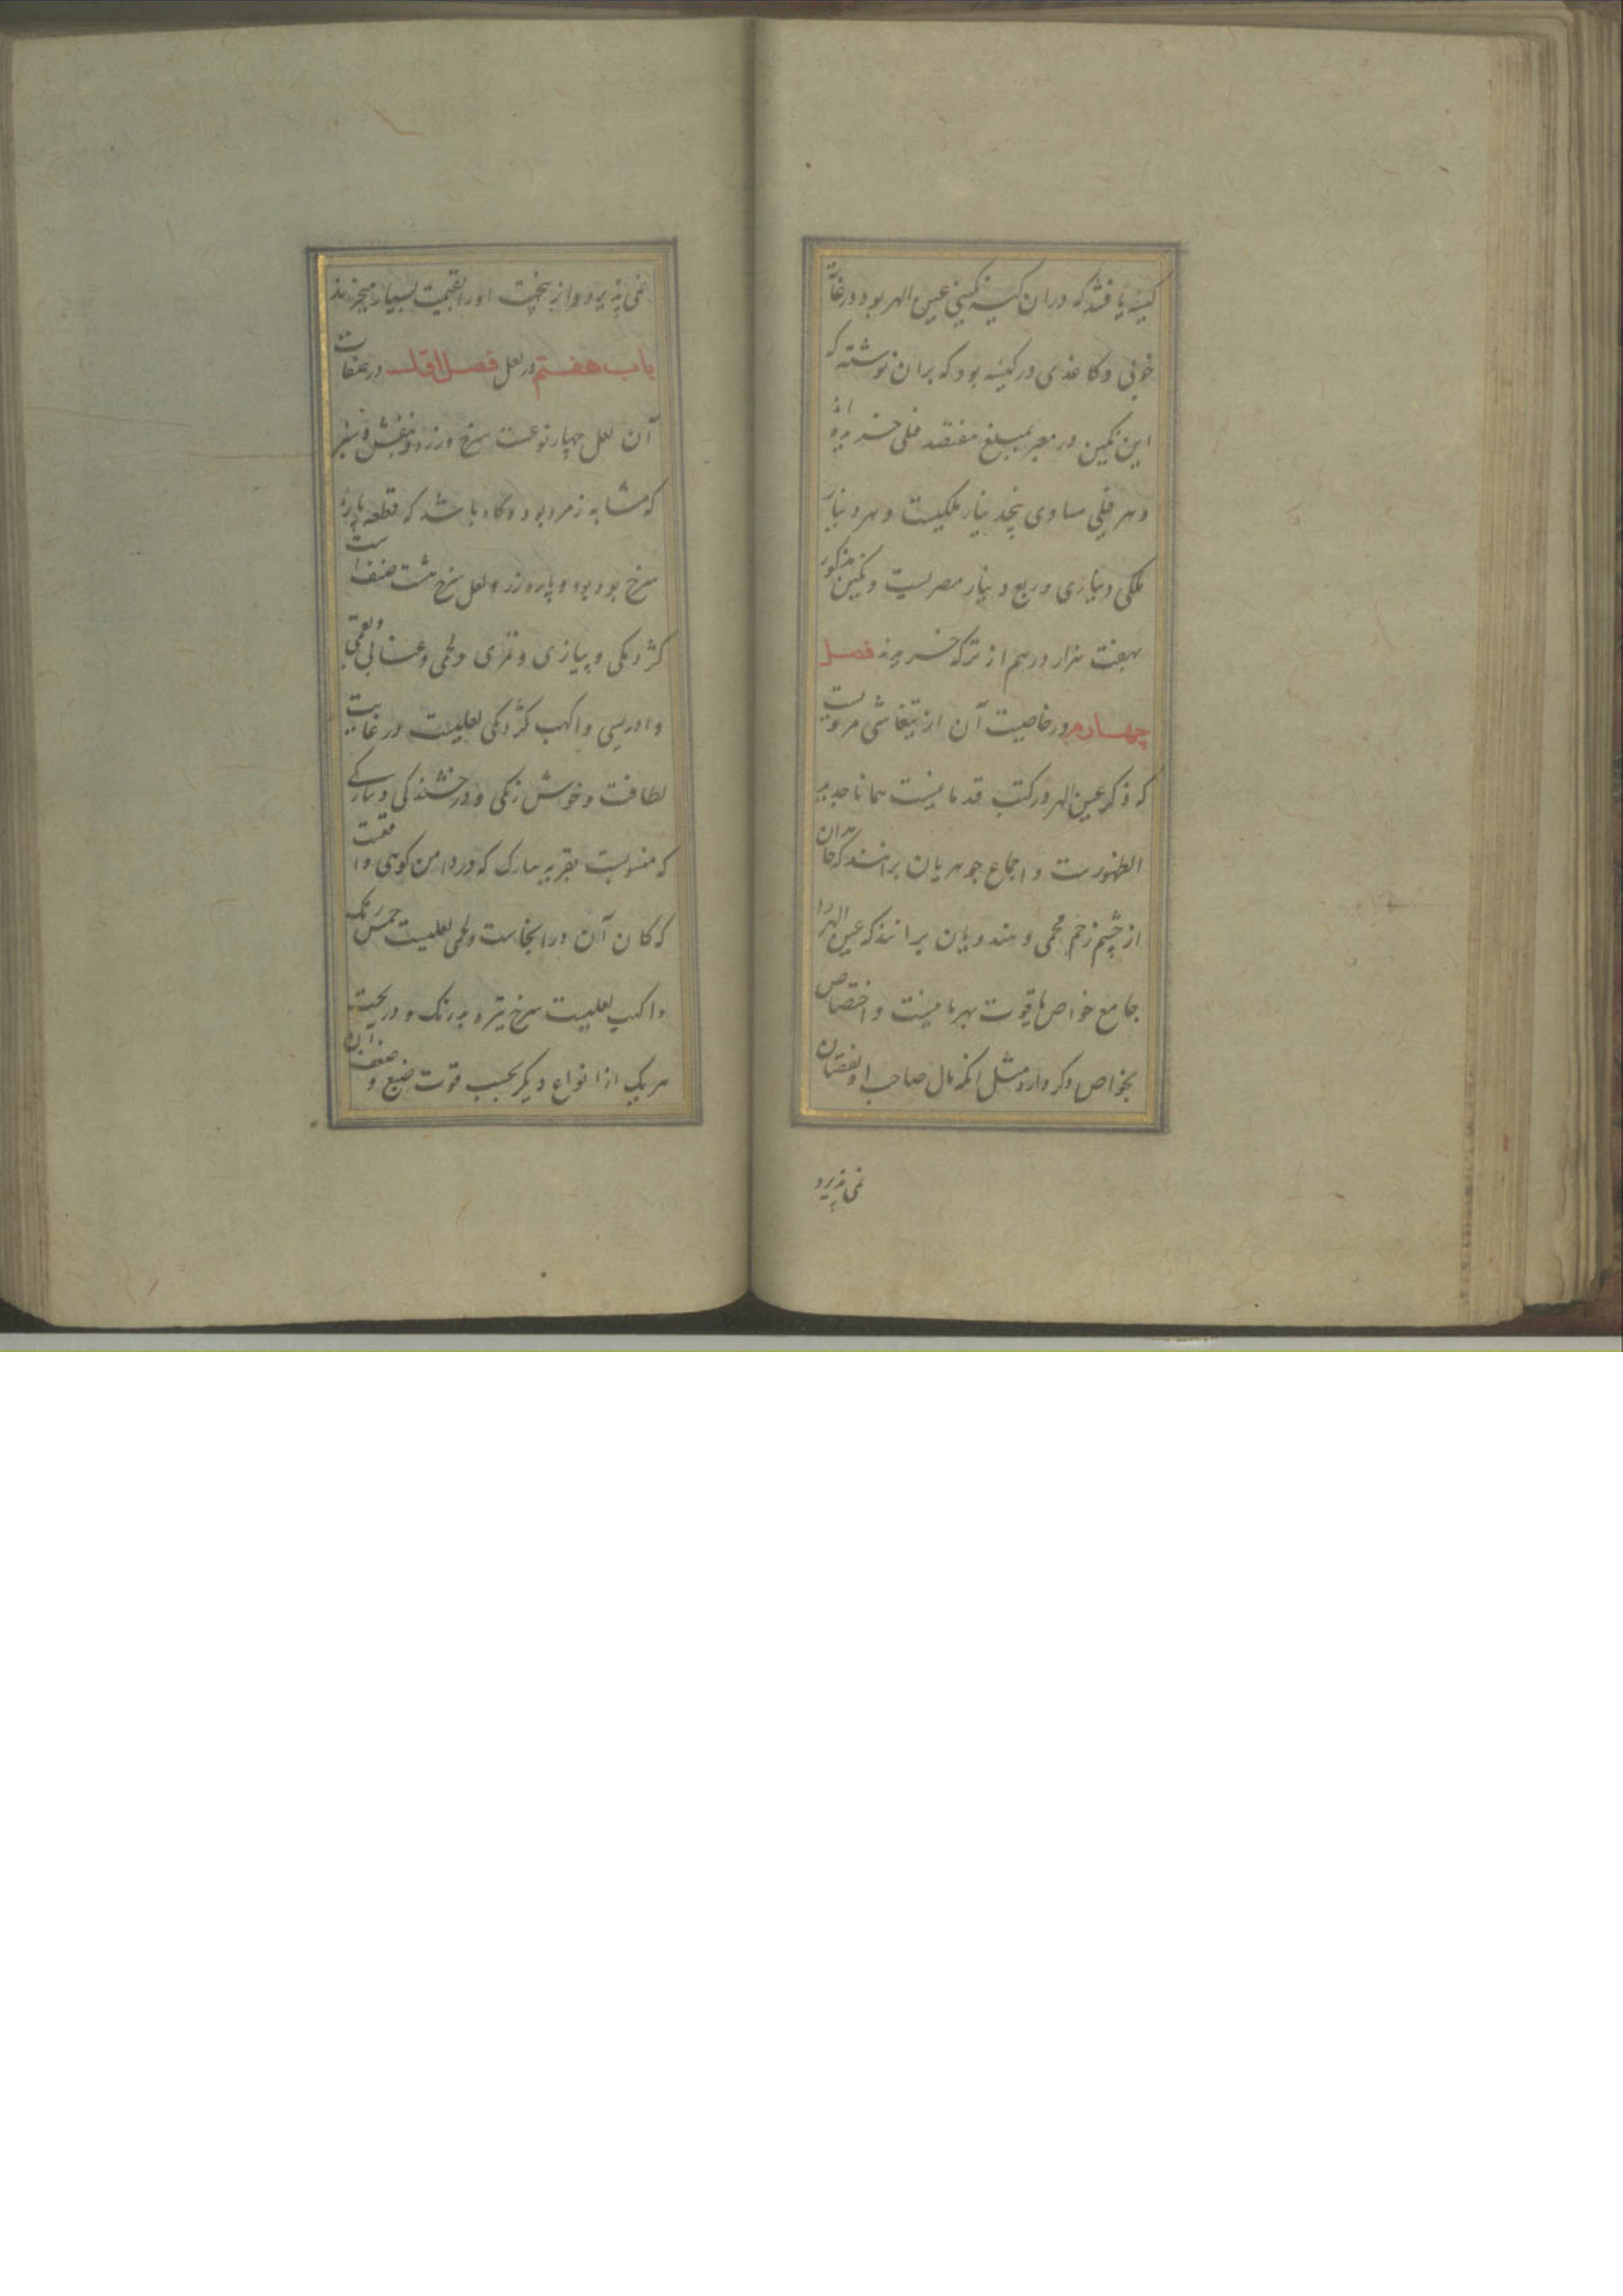 کیسهٔ یافتند که در ان کیسه نکینی عین الهر بود در غایة
خوبی و کاغذی در کیسه بود که بران نوشته که
این نکین در معبر بمبلغ هفتصد فلی خریده اند
و هر فلی مساوی پنج دینار ملکیست و هر دینار
ملکی دیناری و ربع دینار مصریست و نکین مذکور
بهفت هزار درهم از ترکه خریدند فصل
چهارم در خاصیت آن از تیفاشی مرویست
که ذکر عین الهر در کتب قدما نیست همانا جدید
الظهورست و اجماع جوهریان برانند که حامل ان
از چشم زخم محمی و هندویان برانند که عین الهر را
جامع خواص یاقوت بهرمانیست و اختصاص
بخواص دکر دارد مثل انکه مال صاحب او نقصان
نمی پذیرد
نمی پذیرد و از ینجهت او را بقیمت بسیار میخرند
باب هفتم در لعل فصل اول در صفات
آن لعل چهار نوعست سرخ و زرد و بنفش و سبز
که مشابه زمرد بود و کاه باشد که قطعه پارهٔ
سرخ بود و پاره زرد و لعل سرخ هشت صنف است
کژدمکی و پیازی و تمری و لحمی و عنابی و بقمی
و ادریسی و اکهب کژدمکی لعلیست در غایت
لطافت و خوش رنکی و درخشندکی و پیازکی
که منسوبست بقریه پیازک که در دامن کوهی واقعست
که کان آن در انجاست و لحمی لعلیست رنک
و اکهب لعلیست سرخ تیره بدرنک و در تحت
هر یک از انواع دیکر بحسب قوت صبغ و ضعف ان